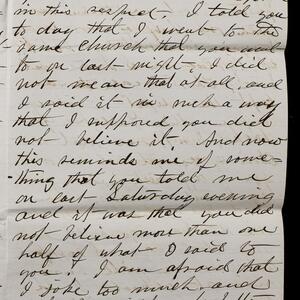 in this respect. I told you
to day that I went to the
same church that you went
to on last night, I did
not mean that at all, and
I said it in such a way
that I supposed you did
not believe it. And now
this reminds me of some-
thing that you told me
on last Saturday evening
and it was that you did
not believe more than one
half of what I said to
you. I am afraid that
I joke too much, and